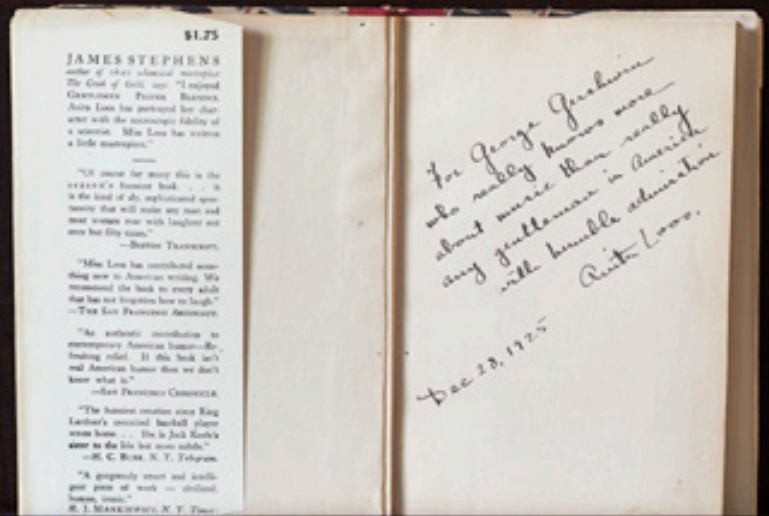 $1.75
JAMES STEPHENS
author of that whimsical masterpiece
The Crock of Gold, says "I enjoyed
GENTLEMEN PREFER BLONDES.
Anita Loos has portrayed her char-
acter with the microscopic fidelity of
a scientist. Miss Loos has written
a little masterpiece."
"Of course for many this is the
season's funniest book. . . it
is the kind of sly, sophisticated spon-
taneity that will make any man and
most women roar with laughter not
once but fifty times."
—BOSTON TRANSCRIPT.
"Miss Loos has contributed some-
thing new to American writing. We
recommend the book to every adult
that has not forgotten how to laugh."
—THE SAN FRANCISCO ARGONAUT.
"An authentic contribution to
contemporary American humor—Re-
freshing relief. If this book isn't
real American humor then we don't
know what is."
—SAN FRANCISCO CHRONICLE.
"The funniest creation since King
Lardner's baseball player
wrote home. . . She is Jack Keefe's
sister to the life but more subtle."
—H. C. N. Y. Telegram.
"A gorgeously smart and intelli-
gent piece of work — civilized,
human, ironic."
H. J. MANKIEWICZ, N. Y. Times
For George Gershwin
who really knows more
about music than really
any gentleman in America
with humble admiration
Anita Loos.
Dec 28, 1925